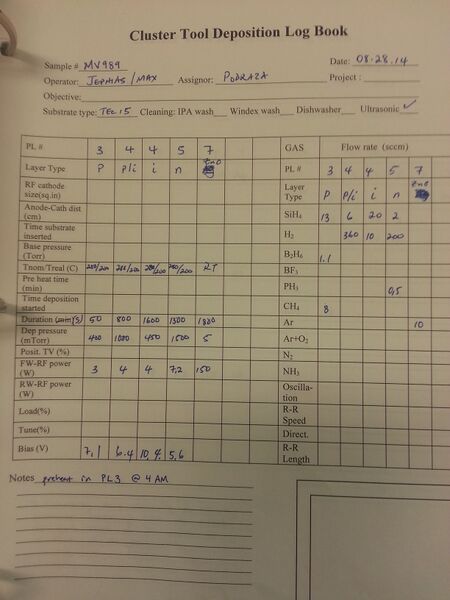 Cluster Tool Deposition Log Book
Sample # MV989 Date: 08.28.14
Operator: JEPHIAS/MAX Assignor: PODRAZA Project :
Objective:
Substrate type: TEC 15 Cleaning: IPA wash Windex wash Dishwasher Ultrasonic ✓
PL # 3 4 4 5 7 GAS Flow rate (sccm)
Layer Type P P/i i n ZnO PL # 3 4 4 5 7
RF cathode size(sq.in) Layer Type P P/i i n ZnO
Anode-Cath dist (cm) SiH4 13 6 20 2
Time substrate inserted H2 360 10 200
Base pressure (Torr) B2H6 1.1
Tnom/Treal (C) 280/200 280/200 280/200 RT BF3
Pre heat time (min) PH3 0.5
Time deposition started CH4 8
Duration (min) (s) 50 800 1600 1300 1800 Ar 10
Dep pressure (mTorr) 400 1000 450 1500 5 Ar+O2
Posit. TV (%) N2
FW-RF power (W) 3 4 4 7.2 150 NH3
RW-RF power (W) Oscilla-tion
Load(%) R-R Speed
Tune(%) Direct.
Bias (V) 7.1 6.4 10.4 5.6 R-R Length
Notes preheat in PL3 @ 4 AM